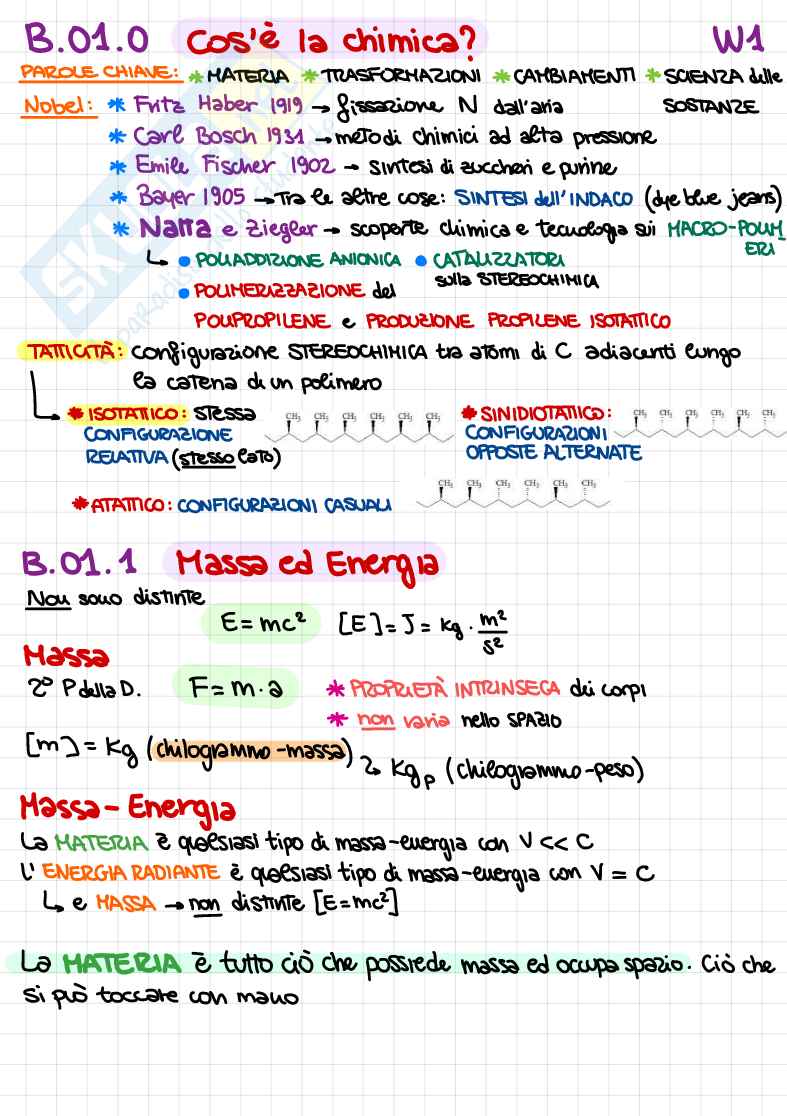 B.01.0 Cos'è la chimica? W1
PAROLE CHIAVE: * MATERIA * TRASFORMAZIONI * CAMBIAMENTI * SCIENZA delle SOSTANZE
Nobel: * Fritz Haber 1919 → fissazione N dall'aria
* Carl Bosch 1931 → metodi chimici ad alta pressione
* Emile Fischer 1902 → sintesi di zuccheri e purine
* Bayer 1905 → Tra le altre cose: SINTESI dell'INDACO (dye blue jeans)
* Natta e Ziegler → scoperte chimica e tecnologia sui MACRO-POLIMERI
↳ • POLIADDIZIONE ANIONICA • CATALIZZATORI
sulla STEREOCHIMICA
• POLIMERIZZAZIONE del
POLIPROPILENE e PRODUZIONE PROPILENE ISOTATTICO
TATTICITÀ: configurazione STEREOCHIMICA tra atomi di C adiacenti lungo
la catena di un polimero
CH₃ CH₃ CH₃ CH₃ CH₃ CH₃
CH₃ CH₃ CH₃ CH₃ CH₃ CH₃
* ISOTATTICO: stessa
CONFIGURAZIONE
RELATIVA (stesso lato)
* SINIDIOTATTICO:
CONFIGURAZIONI
OPPOSTE ALTERNATE
CH₃ CH₃ CH₃ CH₃ CH₃ CH₃
* ATATTICO: CONFIGURAZIONI CASUALI
B.01.1 Massa ed Energia
Non sono distinte
E = mc² [E] = J = kg · m²/s²
Massa
2° P della D. F = m · a * PROPRIETÀ INTRINSECA dei corpi
* non varia nello SPAZIO
[m] = Kg (chilogrammo-massa)
↳ Kgₚ (chilogrammo-peso)
Massa-Energia
La MATERIA è qualsiasi tipo di massa-energia con V << C
L'ENERGIA RADIANTE è qualsiasi tipo di massa-energia con V = C
↳ e MASSA → non distinte [E=mc²]
La MATERIA è tutto ciò che possiede massa ed occupa spazio. Ciò che
si può toccare con mano